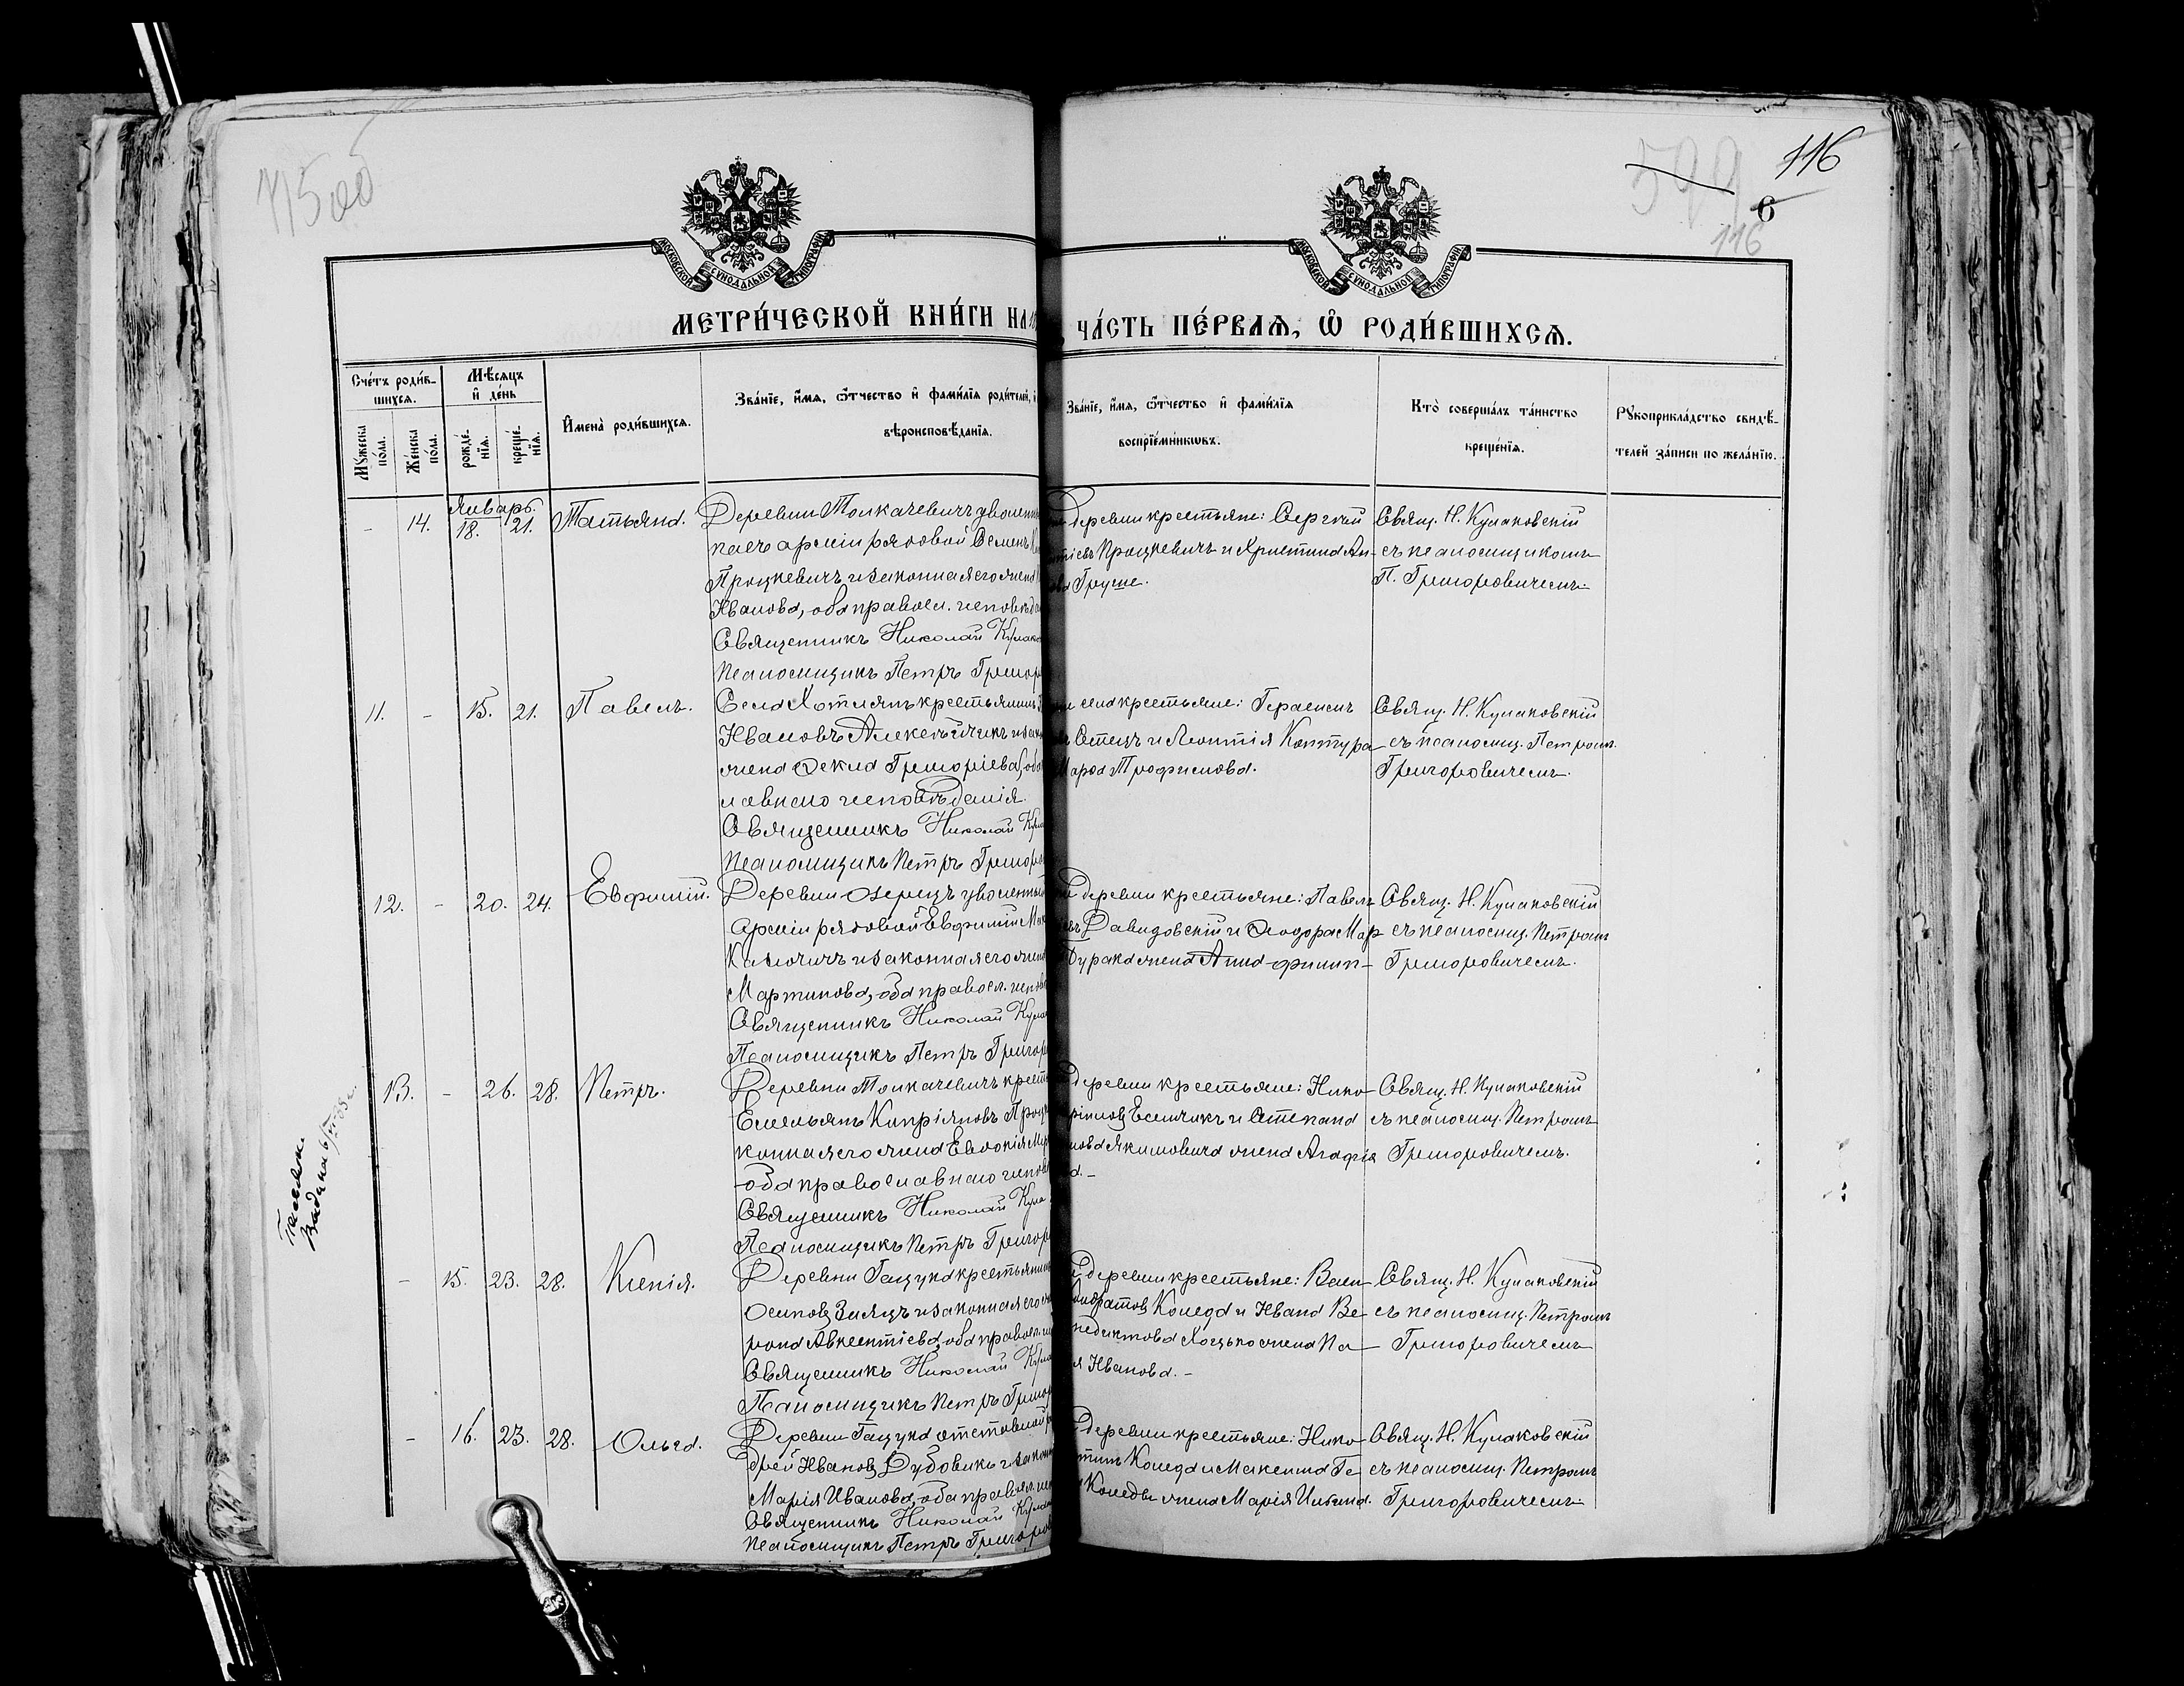 116
6
116
МОСКОВСКОЙ СУНОДАЛЬНОЙ ТИПОГРАФІИ
МОСКОВСКОЙ СУНОДАЛЬНОЙ ТИПОГРАФІИ
МЕТРИ́ЧЕСКОЙ КНИ́ГИ НА
ЧА́СТЬ ПЕ́РВАЯ, Ѡ҆ РОДИ́ВШИХСЯ.
Сче́тъ роди́в-
шихся.
Мѣ́сяцъ
и҆ де́нь
Му́жеска по́ла.
Же́нска по́ла.
рожде́-
нїя.
креще́-
нїя.
И҆мена̀ роди́вшихся.
Зва́нїе, и҆́мя, ѻ҆́тчество и҆ фами́лїя роди́телей, и
вѣроисповѣ́данїя.
Зва́нїе, и҆́мя, ѻ҆́тчество и҆ фами́лїя
воспрїе́мниковъ.
Кто̀ соверша́лъ та́инство
креще́нїя.
Рукоприкла́дство свидѣ́-
телей за́писи по жела́нїю.
Январь.
- 14. 18. 21. Татьяна.
Деревни Толкачевичъ уволенн
армiи рядовой Семенъ
Процкевичъ и законная его жена
Иванова, оба правосл. исповѣда
Священникъ Николай Кулако
Псаломщикъ Петръ Григор
деревни крестьяне: Сергѣй
Процкевичъ и Христина Ан-
Груше.
Свящ. Н. Кулаковскiй
съ псаломщикомъ
П. Григоровичемъ
11. - 15. 21. Павелъ.
Села Хотлянъ крестьянинъ
Ивановъ Алексѣйчикъ и зак
жена Ѳекла Григорiева, оба
лавнаго исповѣданiя.
Священникъ Николай Кул
Псаломщикъ Петръ Григоро
села крестьяне: Герасимъ
Отецъ и Леонтiя Контура
Трофимова.
Свящ. Н. Кулаковскiй
съ псаломщ. Петромъ
Григоровичемъ.
12. - 20. 24. Евфимiй.
Деревни Озерецъ уволенный
армiи рядовой Евфимiй Мак
и законная его жена
Мартинова, оба правосл. исповѣ
Священникъ Николай Кула
Псаломщикъ Петръ Григор
деревни крестьяне: Павелъ
Давидовскiй и Ѳеодора Мар
Бурака жена Анна Филип-
Свящ. Н. Кулаковскiй
съ псаломщ. Петромъ
Григоровичемъ.
13. - 26. 28. Петръ.
Деревни Толкачевичъ крест
Емельянъ Кипрiяновъ Проц
конная его жена Евдокiя Мар
оба православнаго исповѣ
Священникъ Николай Кула
Псаломщикъ Петръ Григор
деревни крестьяне: Нико-
Есипчикъ и Степана
Якимовича жена Агафiя
а. -
Свящ. Н. Кулаковскiй
съ псаломщ. Петромъ
Григоровичемъ.
- 15. 23. 28. Ксенiя.
Деревни Гацука крестьянин
Осиповъ Зняцъ и законная его
рона Авксентiева, оба правосл. ис
Священникъ Николай Кула
Псаломщикъ Петръ Григор
деревни крестьяне: Васи-
Коледа и Ивана Ве-
недиктова Хоцько жена Па-
я Иванова. -
Свящ. Н. Кулаковскiй
съ псаломщ. Петромъ
Григоровичемъ
- 16. 23. 28. Ольга.
Деревни Гацука отставной р
дрей Ивановъ Дубовикъ и закон
Марiя Иванова, оба правосл. исп
Священникъ Николай Кулак
Псаломщикъ Петръ Григоров
деревни крестьяне: Нико-
Коледа и Максима Ге
Коледы жена Марiя Ильина.
Свящ. Н. Кулаковскiй
съ псаломщ. Петромъ
Григоровичемъ